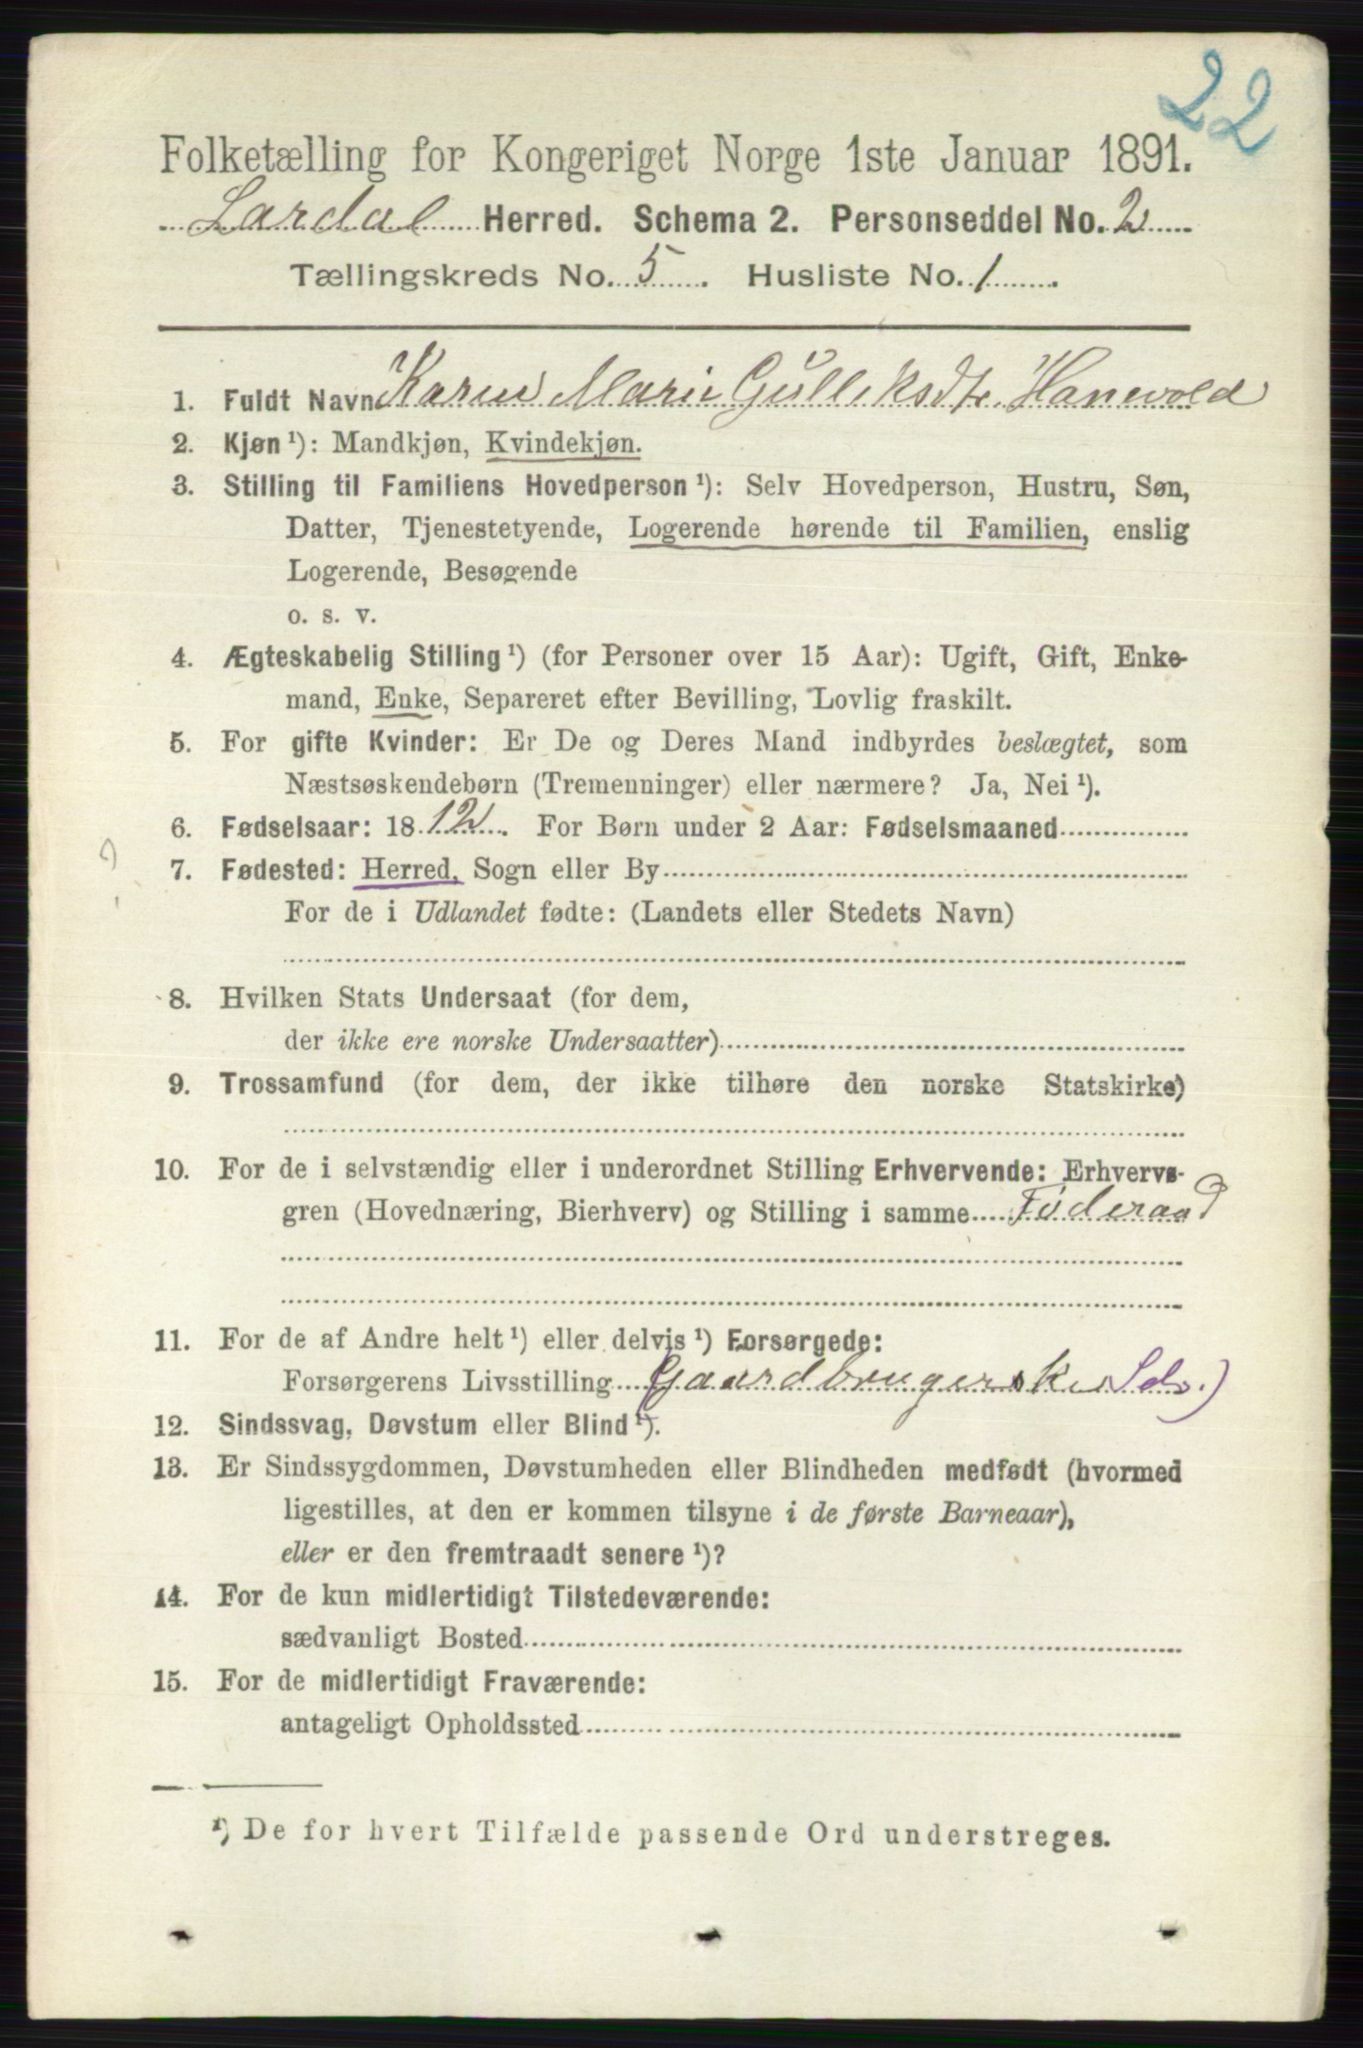 22
Folketælling for Kongeriget Norge 1ste Januar 1891.
Lardal Herred. Schema 2. Personseddel No. 2
Tællingskreds No. 5. Husliste No. 1.
1. Fuldt Navn Karen Marie Gulleksdtr. Hanevold
2. Kjøn ¹): Mandkjøn, Kvindekjøn.
3. Stilling til Familiens Hovedperson ¹): Selv Hovedperson, Hustru, Søn,
Datter, Tjenestetyende, Logerende hørende til Familien, enslig
Logerende, Besøgende
o. s. v.
4. Ægteskabelig Stilling ¹) (for Personer over 15 Aar): Ugift, Gift, Enke-
mand, Enke, Separeret efter Bevilling, Lovlig fraskilt.
5. For gifte Kvinder: Er De og Deres Mand indbyrdes beslægtet, som
Næstsøskendebørn (Tremenninger) eller nærmere? Ja, Nei ¹).
6. Fødselsaar: 1812. For Børn under 2 Aar: Fødselsmaaned
?
7. Fødested: Herred, Sogn eller By
For de i Udlandet fødte: (Landets eller Stedets Navn)
8. Hvilken Stats Undersaat (for dem,
der ikke ere norske Undersaatter)
9. Trossamfund (for dem, der ikke tilhøre den norske Statskirke)
10. For de i selvstændig eller i underordnet Stilling Erhvervende: Erhvervs-
gren (Hovednæring, Bierhverv) og Stilling i samme Føderaad
11. For de af Andre helt ¹) eller delvis ¹) Forsørgede:
Forsørgerens Livsstilling Gaardbrugerske
12. Sindssvag, Døvstum eller Blind ¹).
13. Er Sindssygdommen, Døvstumheden eller Blindheden medfødt (hvormed
ligestilles, at den er kommen tilsyne i de første Barneaar),
eller er den fremtraadt senere ¹)?
14. For de kun midlertidigt Tilstedeværende:
sædvanligt Bosted
15. For de midlertidigt Fraværende:
antageligt Opholdssted
¹) De for hvert Tilfælde passende Ord understreges.